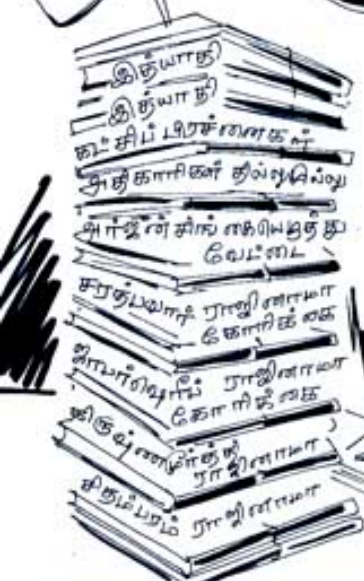 இத்யாதி
இத்யாதி
கட்சிப் பிரச்னைகள்
அதிகாரிகள் தில்லுமில்லு
அர்ஜுன் சிங் கையெழுத்து
வேட்டை
சரத்பவார் ராஜினாமா
கோரிக்கை
ராஜினாமா
கோரிக்கை
கிருஷ்ணமூர்த்தி
ராஜினாமா
சிதம்பரம் ராஜினாமா